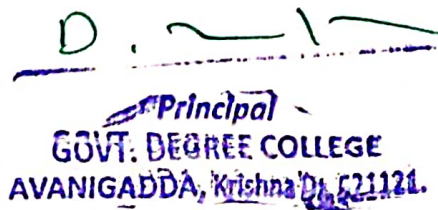 D.
Principal
GOVT. DEGREE COLLEGE
AVANIGADDA, Krishna Dt, 521121.